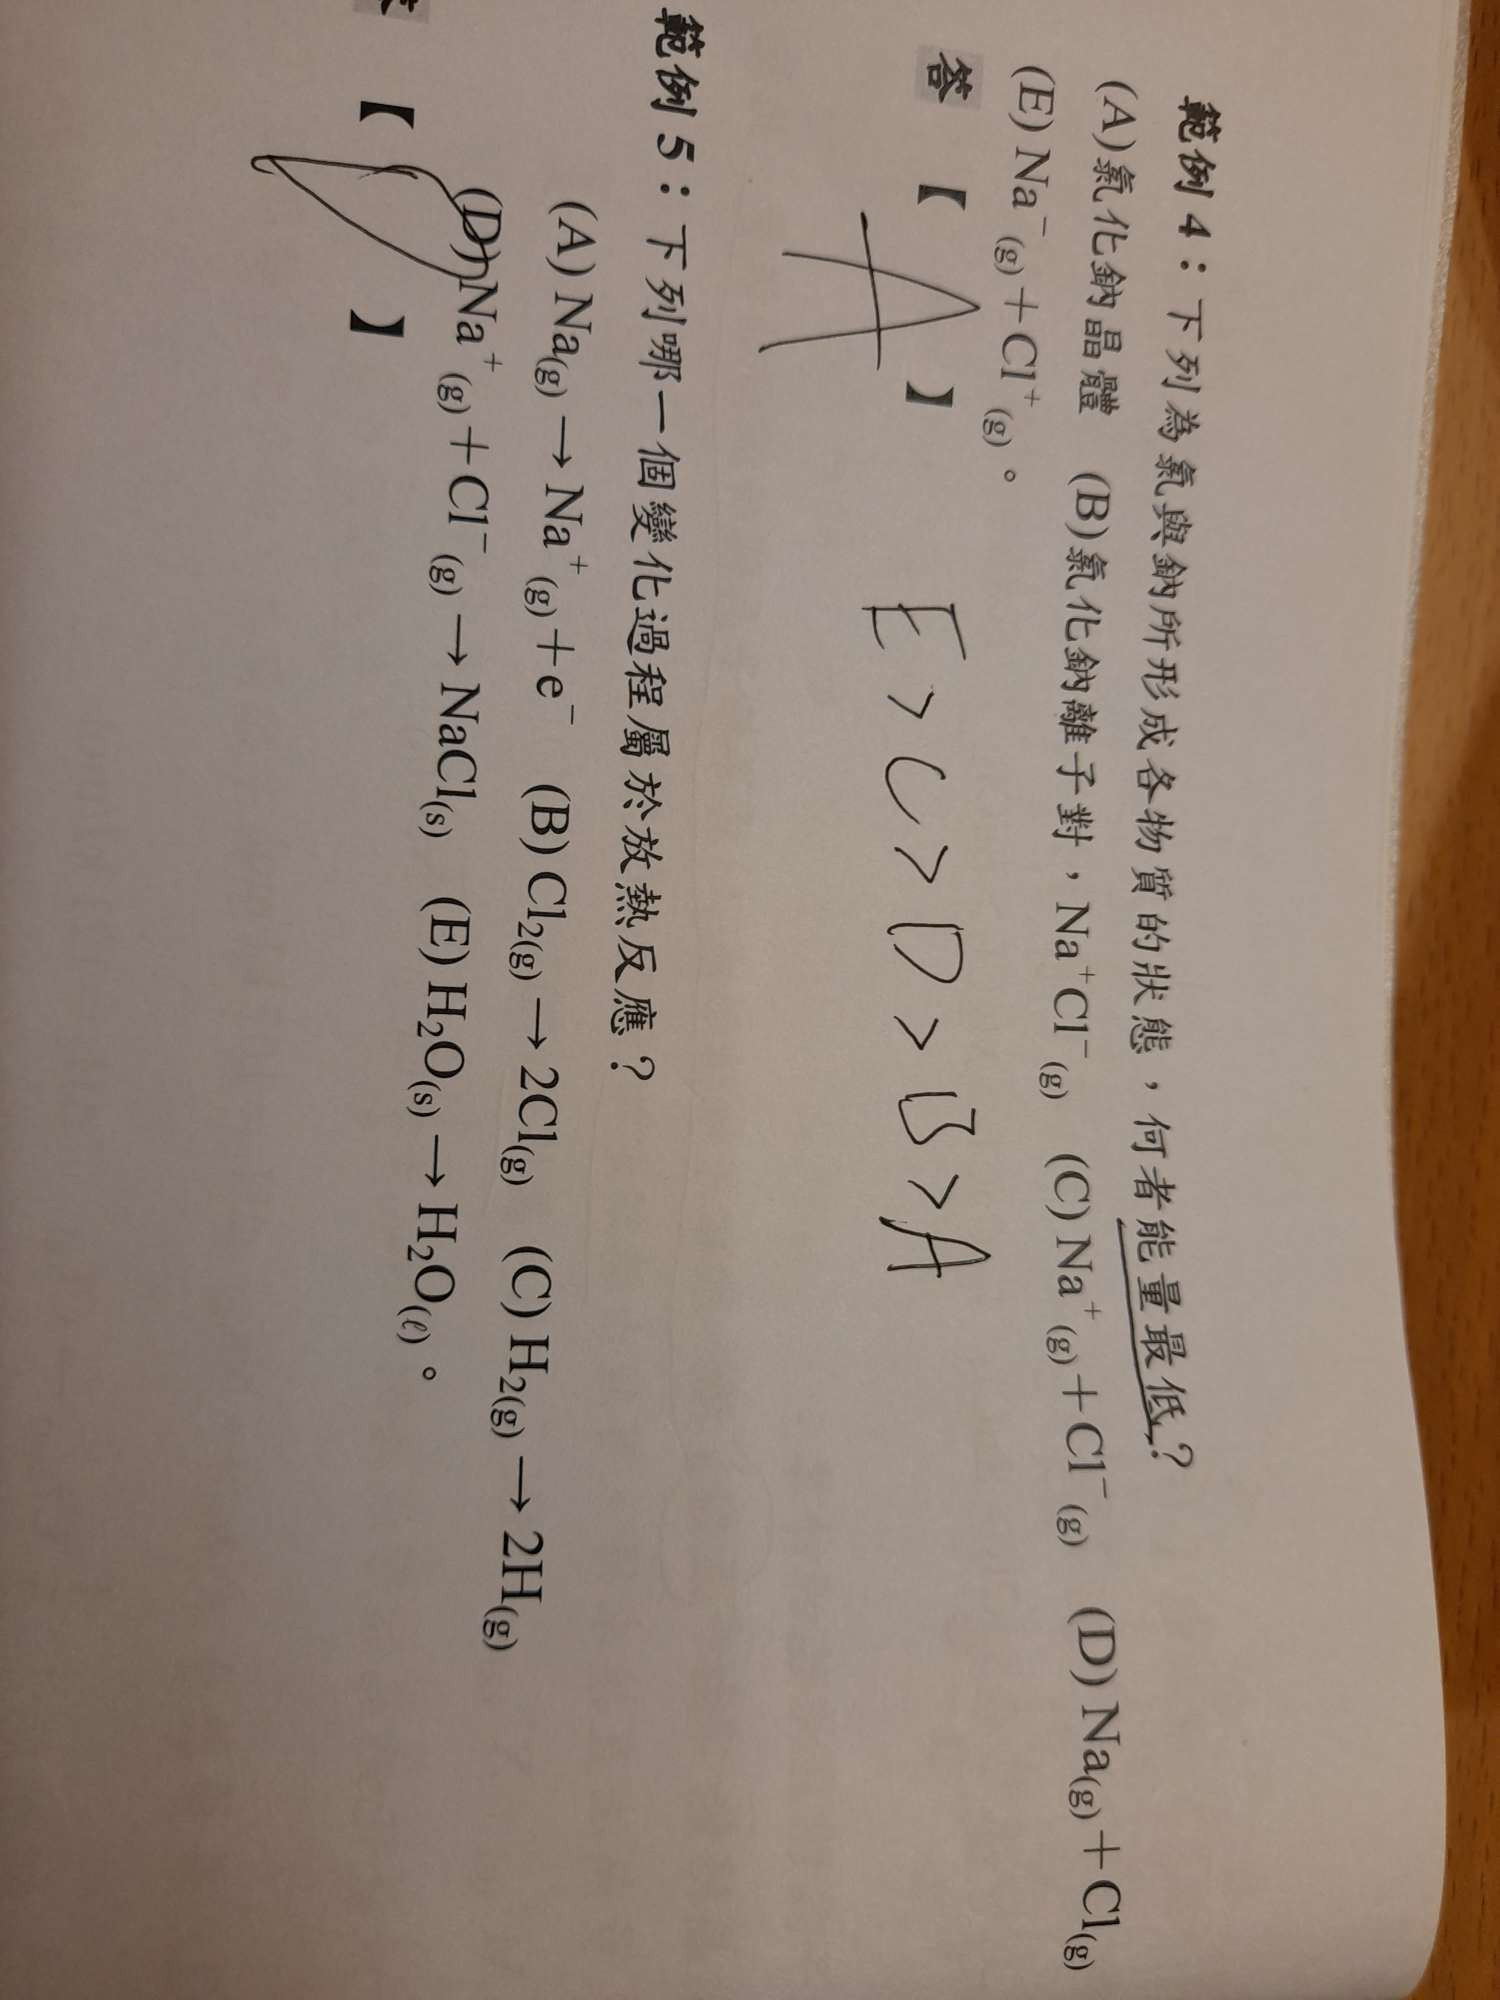 範例 4：下列為氯與鈉所形成各物質的狀態，何者能量最低？
(A)氯化鈉晶體 (B)氯化鈉離子對，Na⁺Cl⁻(g) (C) Na⁺(g)＋Cl⁻(g) (D) Na(g)＋Cl(g)
(E) Na⁻(g)＋Cl⁺(g)。
答 【 A 】
E > C > D > B > A
範例 5：下列哪一個變化過程屬於放熱反應？
(A) Na(g) → Na⁺(g)＋e⁻ (B) Cl₂(g) → 2Cl(g) (C) H₂(g) → 2H(g)
(D) Na⁺(g)＋Cl⁻(g) → NaCl(s) (E) H₂O(s) → H₂O(ℓ)。
【 D 】